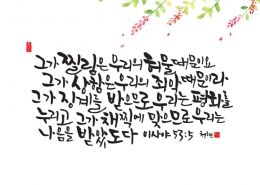 그가 찔림은 우리의 허물 때문이요
그가 상함은 우리의 죄악 때문이라
그가 징계를 받으므로 우리는 평화를
누리고 그가 채찍에 맞으므로 우리는
나음을 받았도다 이사야 53:5